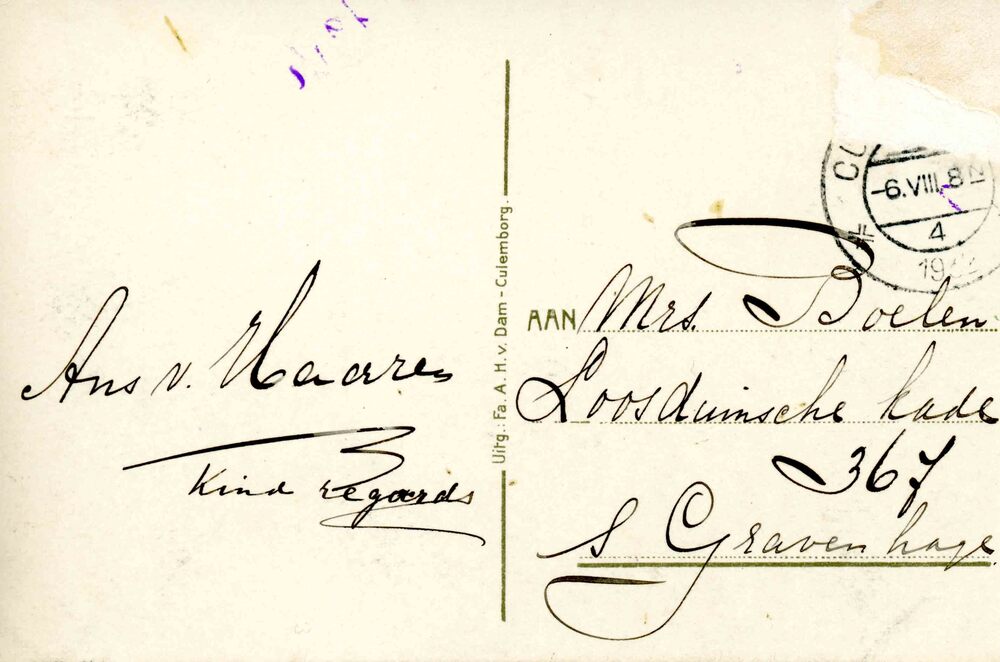 Ans v. Haaren
Kind regards
Uitg.: Fa. A. H. v. Dam - Culemborg.
-6.VIII. 8
4
AAN Mrs. Boelen
Loosduinsche kade
367
s Gravenhage.